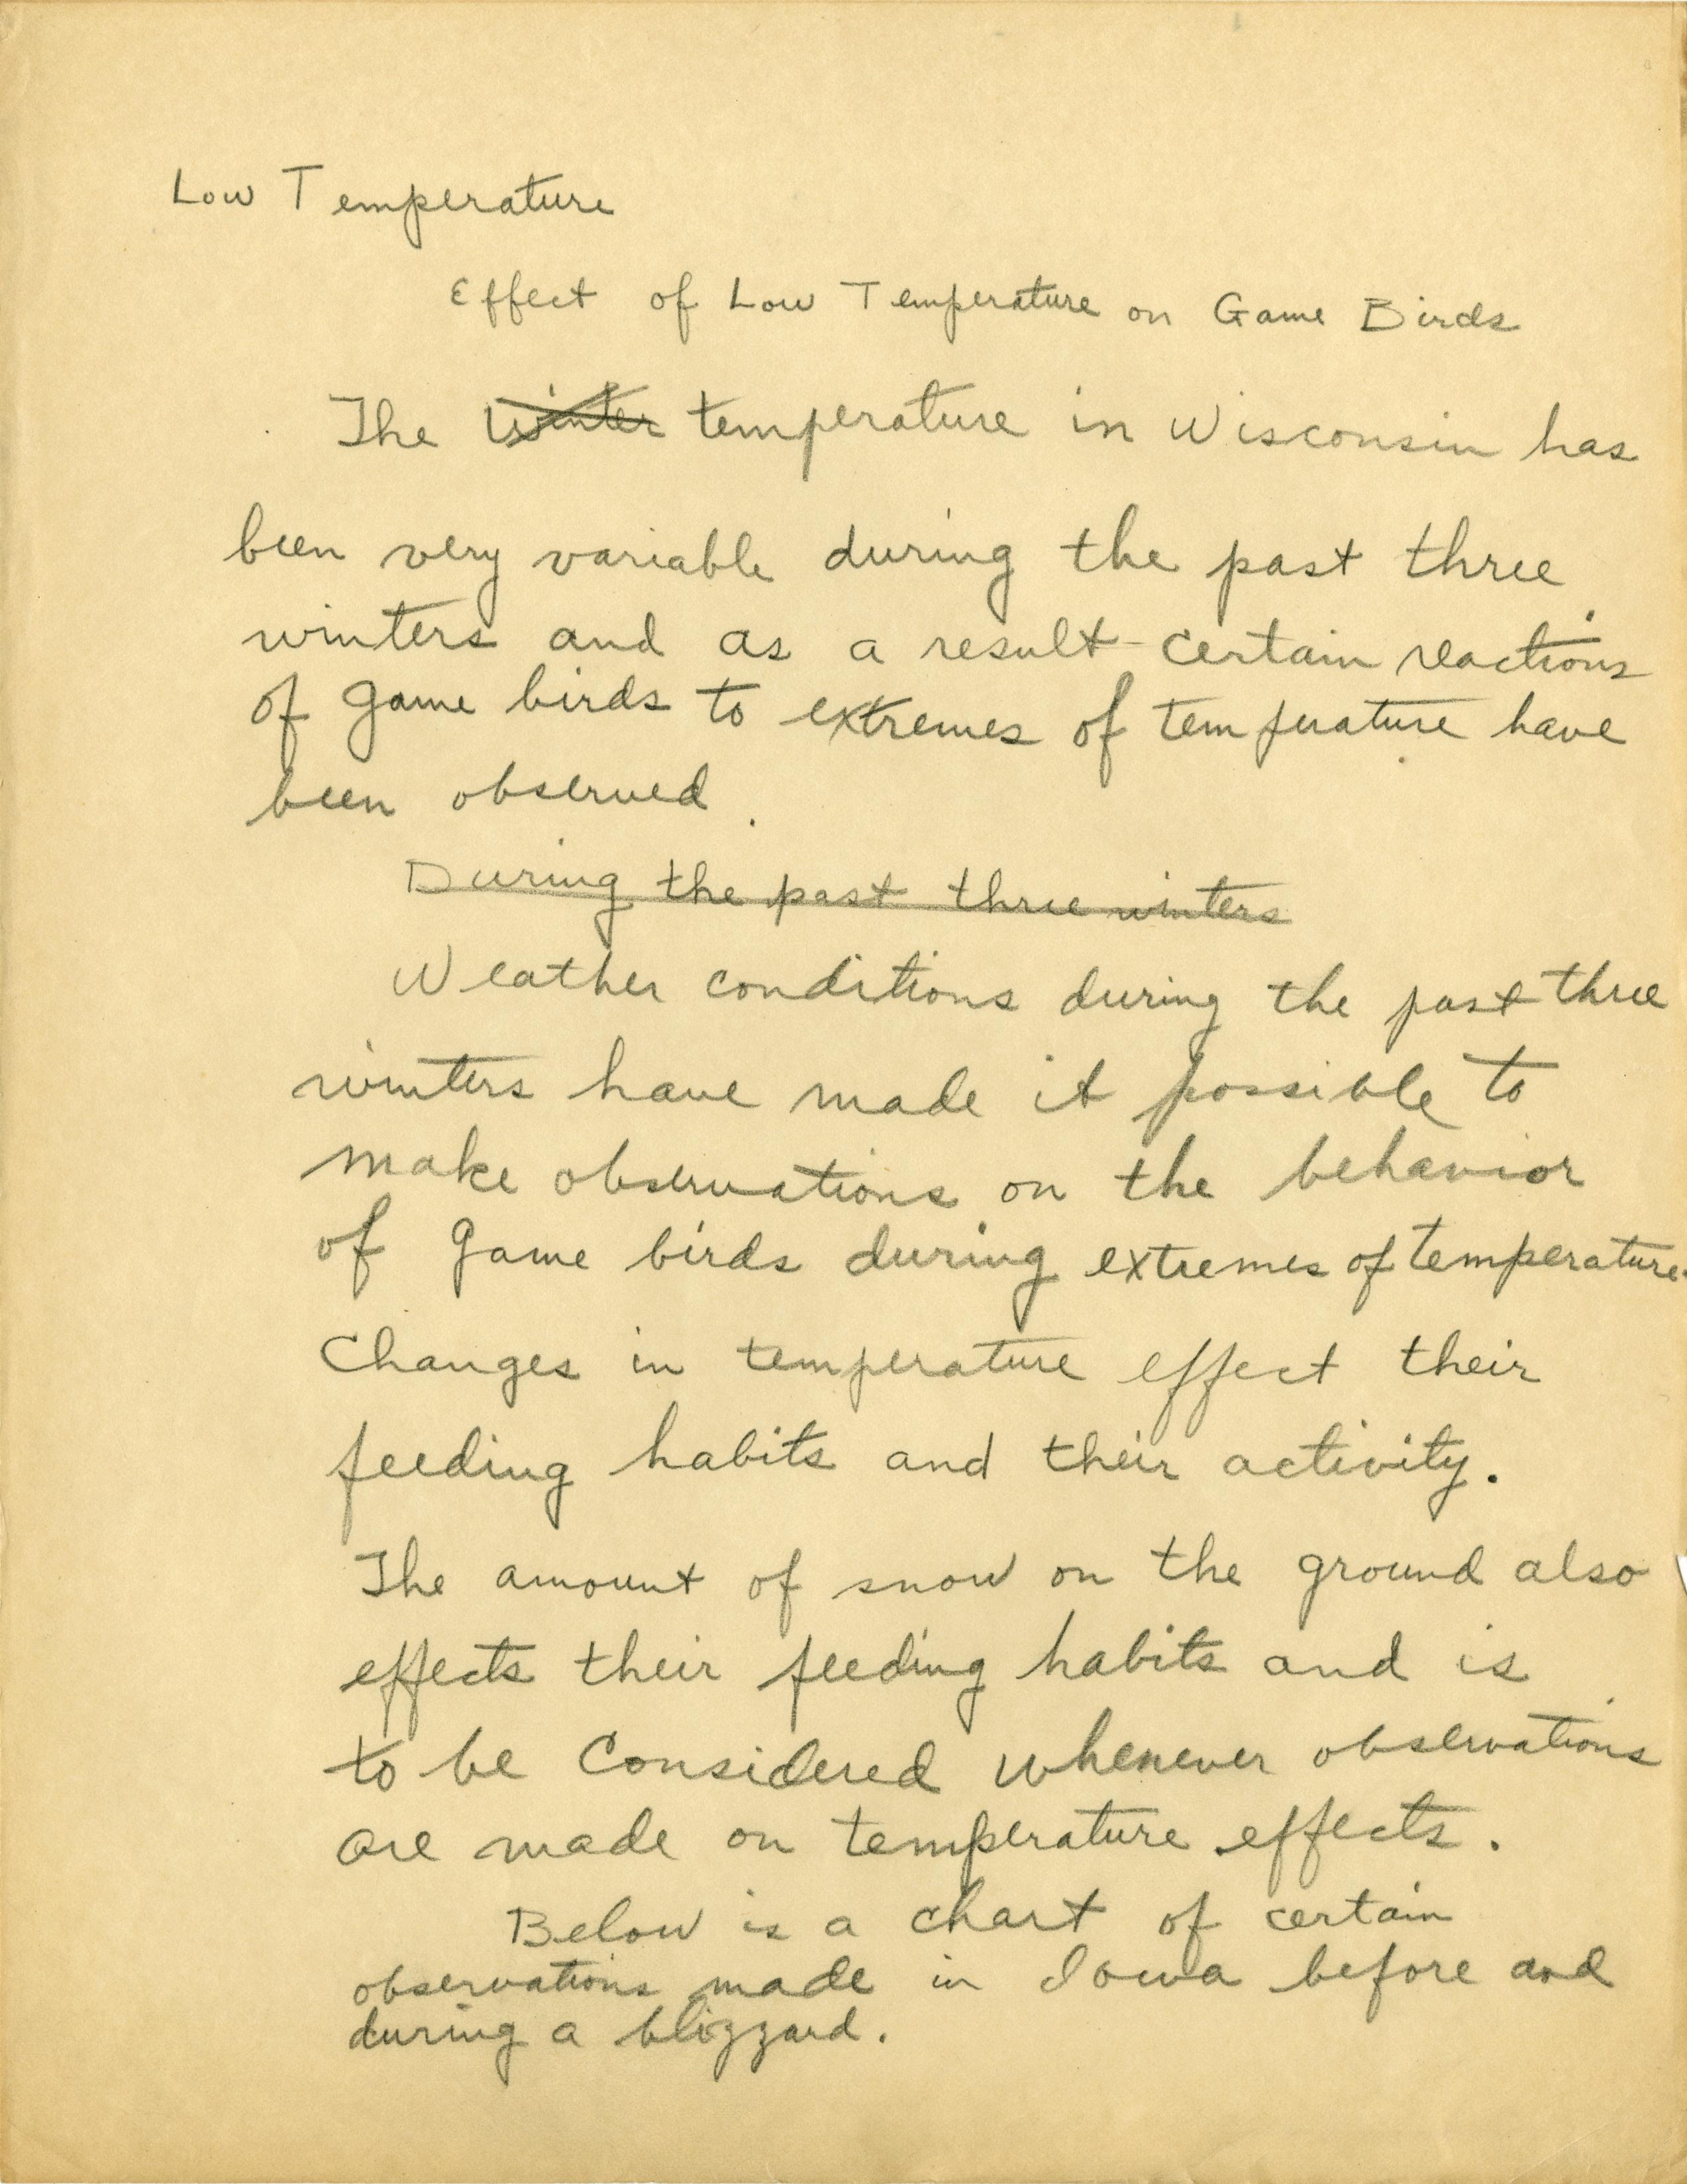 Low Temperature
Effect of Low Temperature on Game Birds
The Winter temperature in Wisconsin has
been very variable during the past three
winters and as a result certain reactions
of game birds to extremes of temperature have
been observed.
During the past three winters
Weather conditions during the past three
winters have made it possible to
make observations on the behavior
of game birds during extremes of temperature.
Changes in temperature effect their
feeding habits and their activity.
The amount of snow on the ground also
effects their feeding habits and is
to be Considered whenever observations
are made on temperature effects.
Below is a chart of certain
observations made in Iowa before and
during a blizzard.